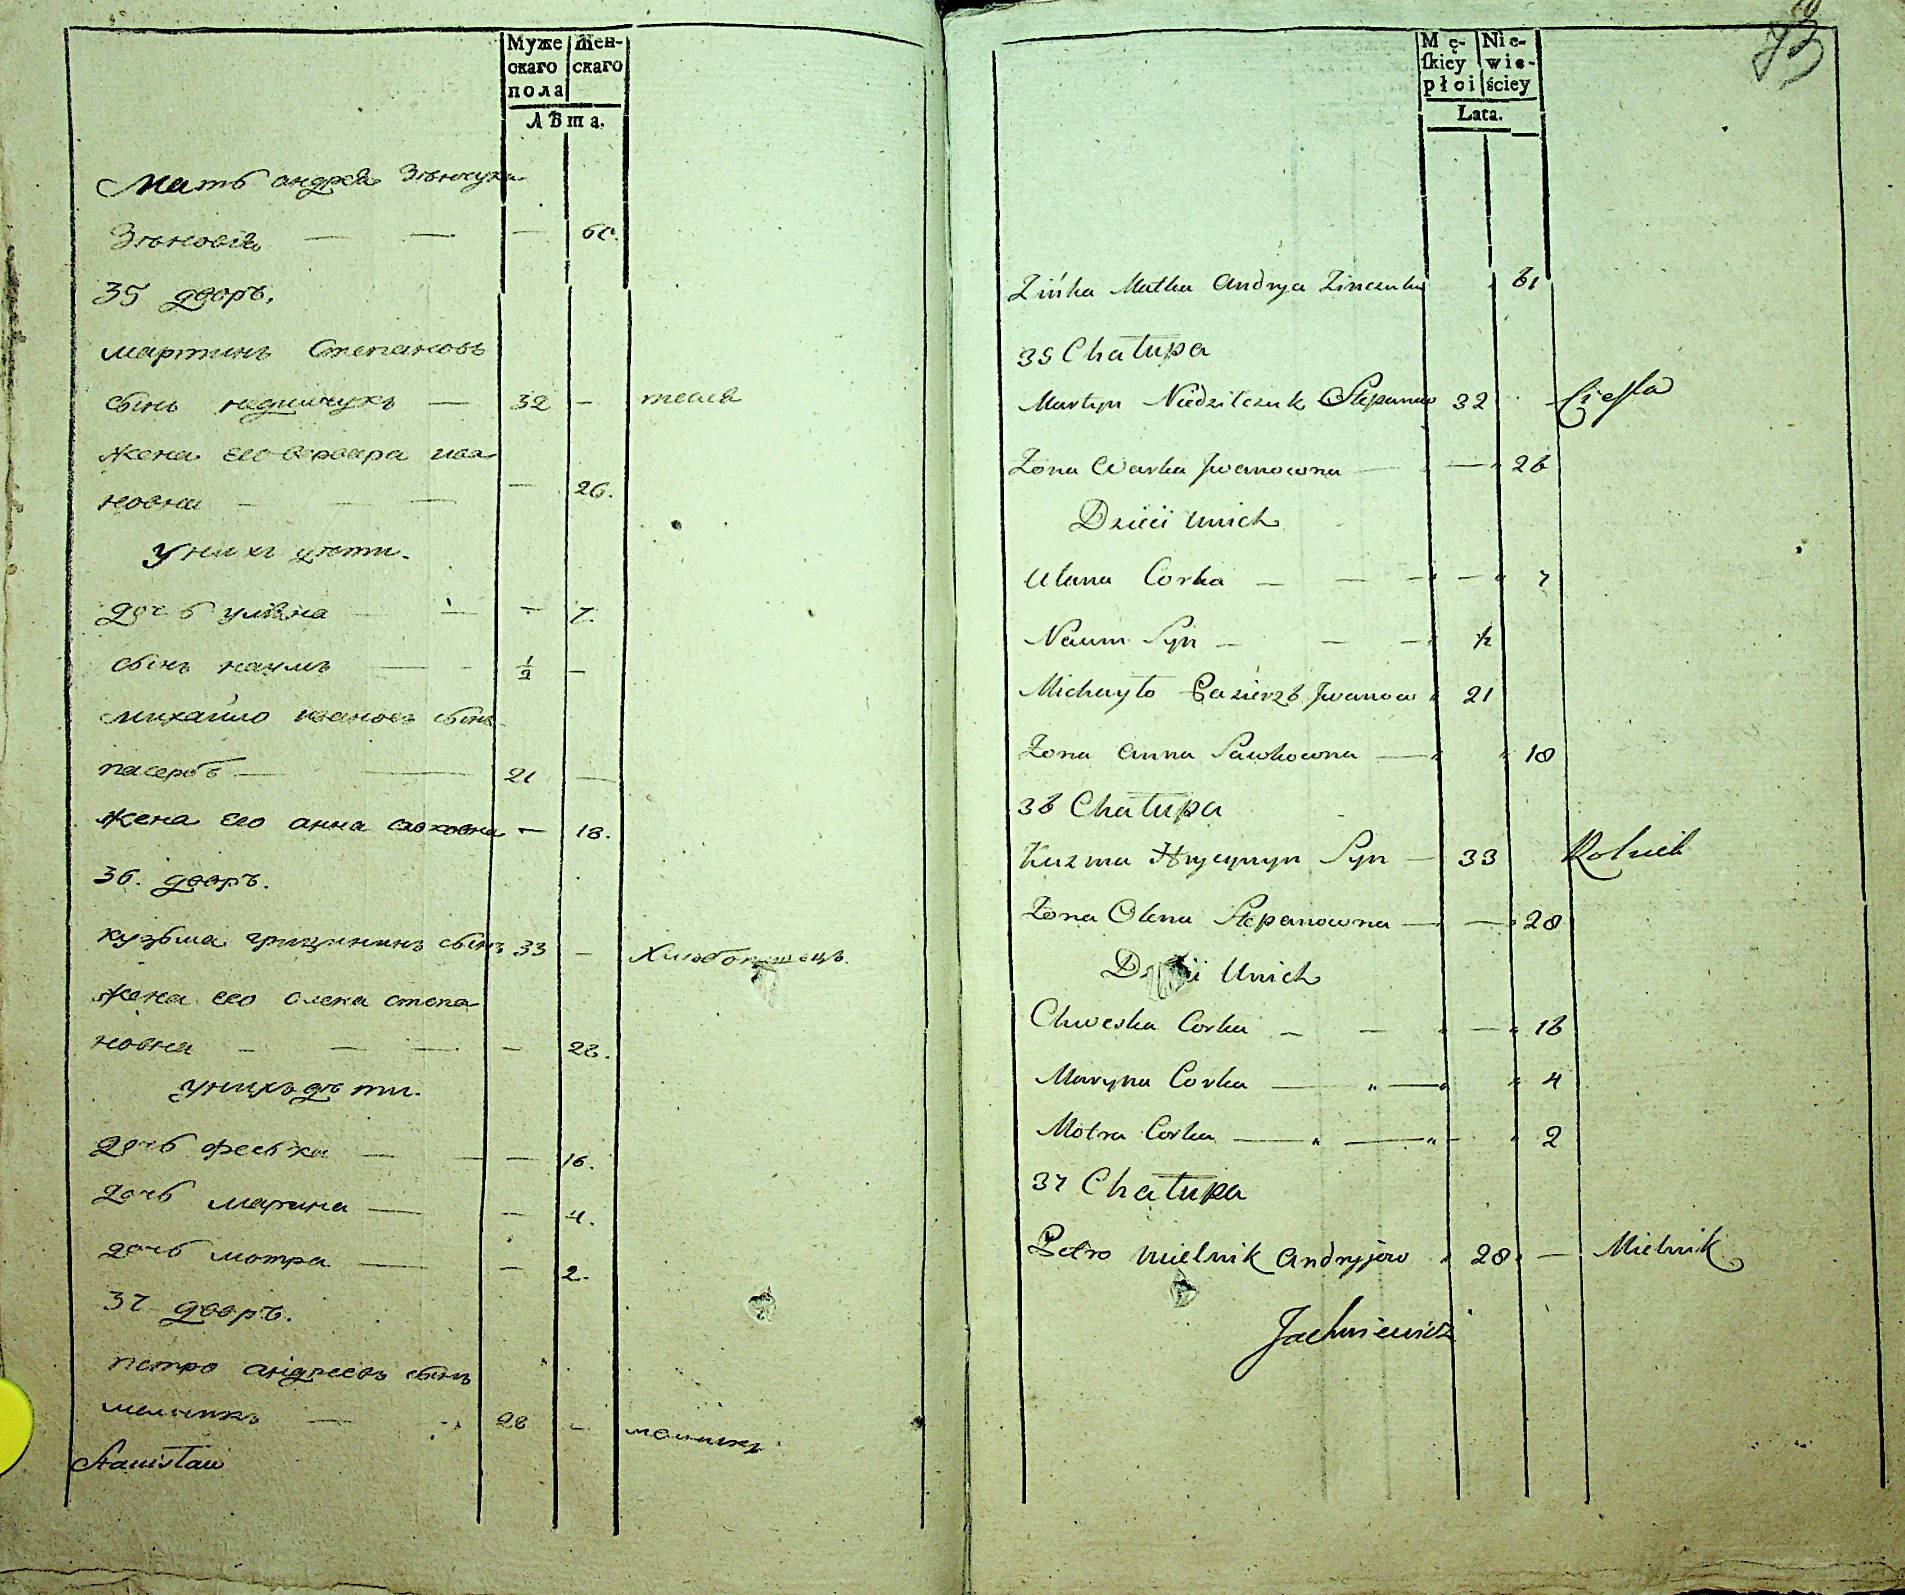 Муже Жен-
скаго скаго
пола
Лѣта.
Мать андрея Зѣнчука
Зѣновія — — — 60.
35 дворъ.
мартинъ Степановъ
сынъ недилчукъ — 32 — тесля
жена его варвара ива
новна — — — — 26.
у нихъ дѣти.
дочь уляна — — — 7.
сынъ наумъ — — ½ —
михайло ивановъ сынъ
пасербъ — — 21 —
жена его анна савковна — 18.
36. дворъ.
кузьма грицининъ сынъ 33 — Хлѣбопашецъ.
жена его олена степа
новна — — — — 28.
у нихъ дѣти.
дочь феська — — — 16.
дочь марина — — 4.
дочь мотра — — 2.
37 дворъ.
петро андреевъ сынъ
мельникъ — 28 — мельникъ
Stanisław
73
Mę- Nie-
ſkiey wie-
płci ściey
Lata.
Zińka Matka Andryja Zinczuka 61
35 Chałupa
Martyn Niedzilczuk Stepanow 32 Cieſla
Zona Warka Jwanowna — — 26
Dzieci Unich
Ulana Corka — — — — 7
Naum Syn — — — ½
Michayło Pasierzb Jwanow 21
Zona Anna Sawkowna — 18
36 Chałupa
Kuzma Hrycynyn Syn — 33 Rolnik
Zona Olena Stepanowna — — 28
Dzieci Unich
Chweska Corka — — — 16
Maryna Corka — — 4
Motra Corka — — — 2
37 Chałupa
Petro Mielnik Andryjow 28 — Mielnik
Jachniewicz